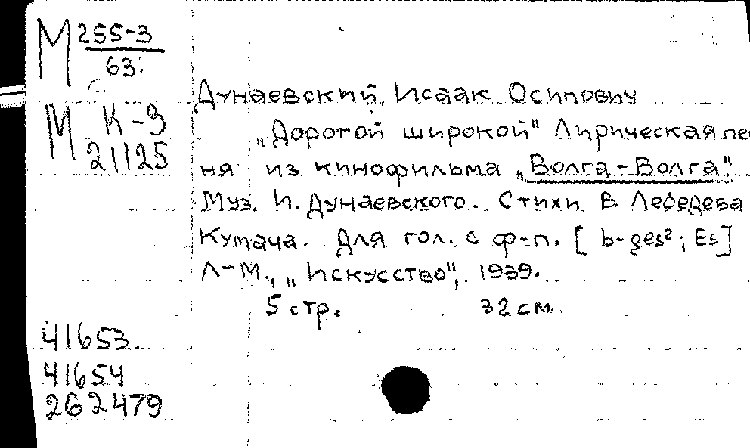 М 255-3
63.
М К-3
21125
Дунаевский, Исаак Осипович
„Дорогой широкой" Лирическая пе
ня из кинофильма „Волга-Волга".
Муз. И. Дунаевского. Стихи В Лебедева
Кумача. Для гол. с ф-п. [b-ges²; Es]
Л-М., „Искусство", 1939.
5 стр. 32 см.
41653
41654
262479